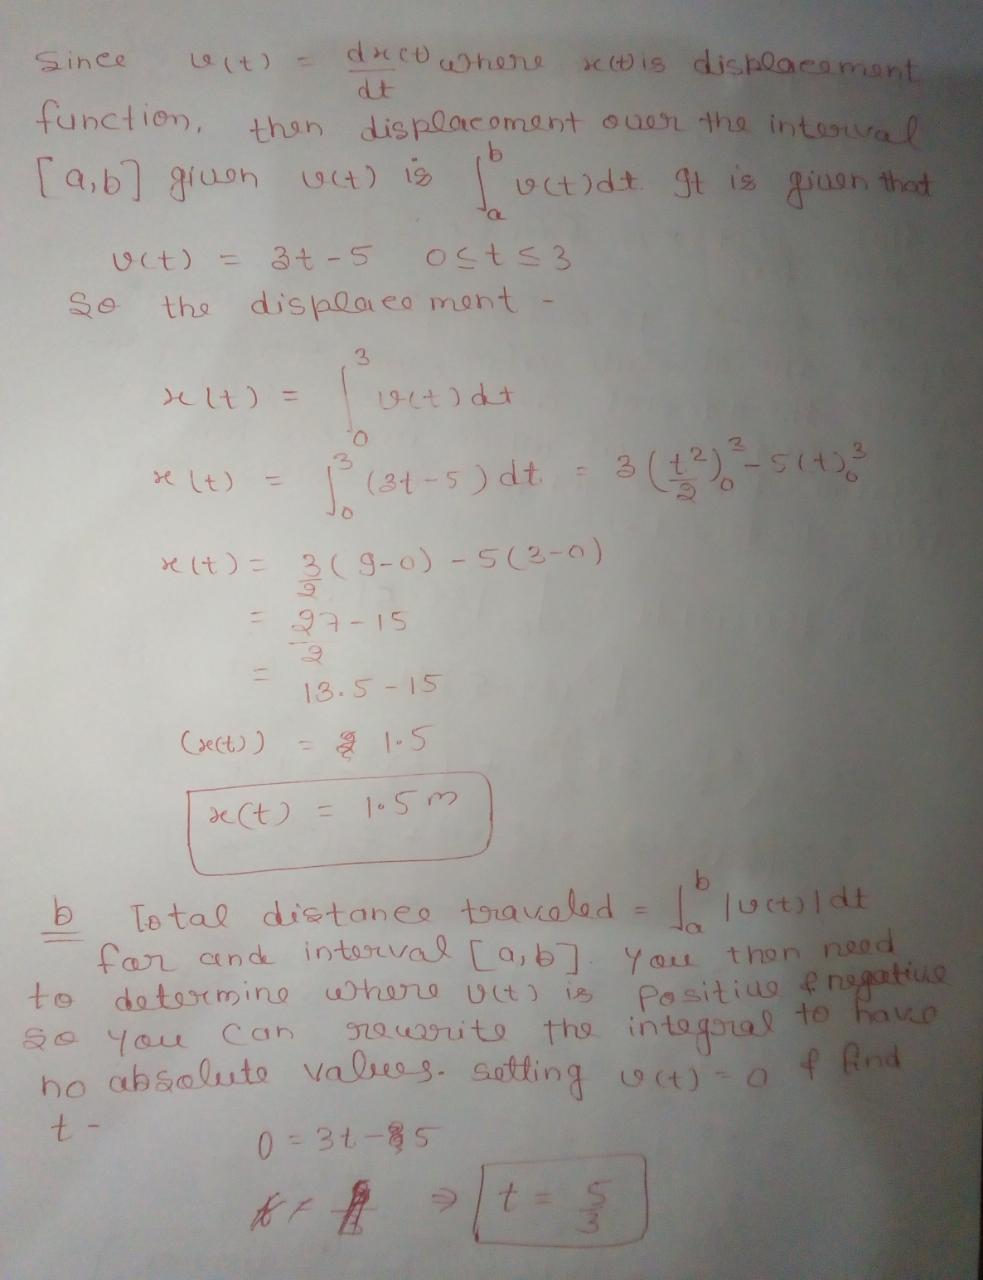 Since v(t) = dx(t)/dt where x(t) is displacement
function, then displacement over the interval
[a,b] given v(t) is ∫_a^b v(t)dt. It is given that
v(t) = 3t-5 0≤t≤3
So the displacement -
x(t) = ∫_0^3 v(t)dt
x(t) = ∫_0^3 (3t-5) dt = 3(t²/2)_0^3 - 5(t)_0^3
x(t) = 3/2 (9-0) - 5(3-0)
= 27/2 - 15
= 13.5 - 15
(x(t)) = 1.5
x(t) = 1.5 m
b Total distance traveled = ∫_a^b |v(t)|dt
for and interval [a,b]. You then need
to determine where v(t) is Positive & negative
So you can rewrite the integral to have
no absolute values. setting v(t) = 0 & find
t -
0 = 3t - 5
⇒ t = 5/3